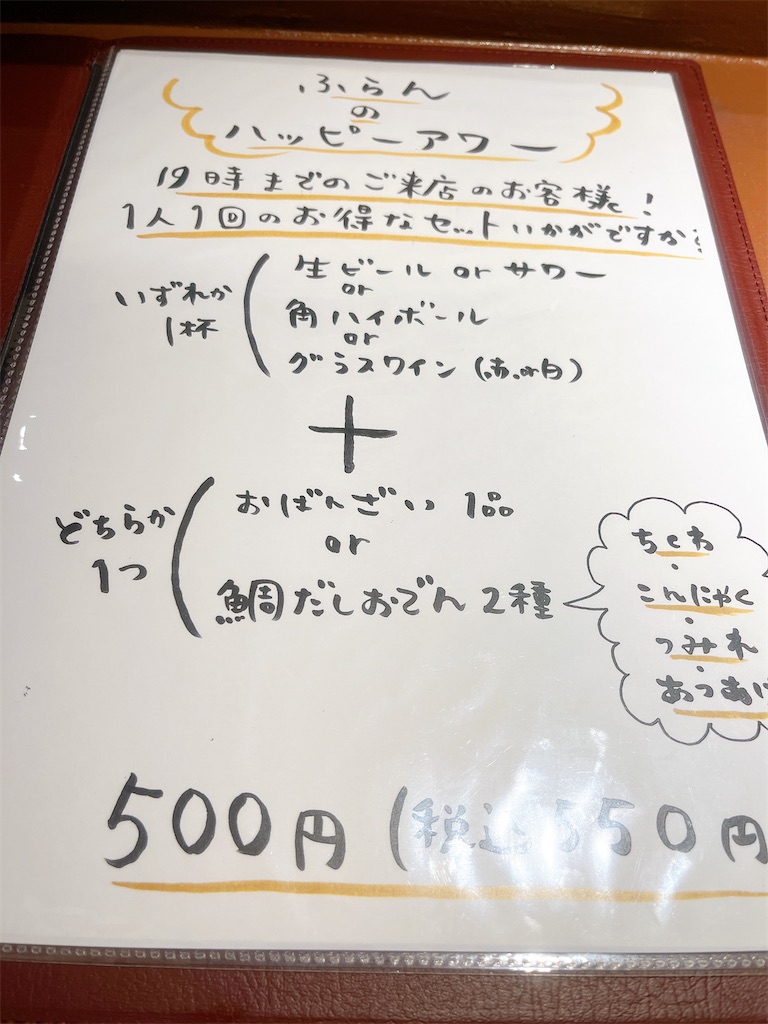 ふらん
の
ハッピーアワー
19時までのご来店のお客様!
1人1回のお得なセットいかがですか?
いずれか
1杯
生ビール or サワー
or
角ハイボール
or
グラスワイン(赤or白)
+
どちらか
1つ
おばんざい 1品
or
鯛だしおでん2種
ちくわ
・
こんにゃく
・
つみれ
・
あつあげ
500円(税込550円